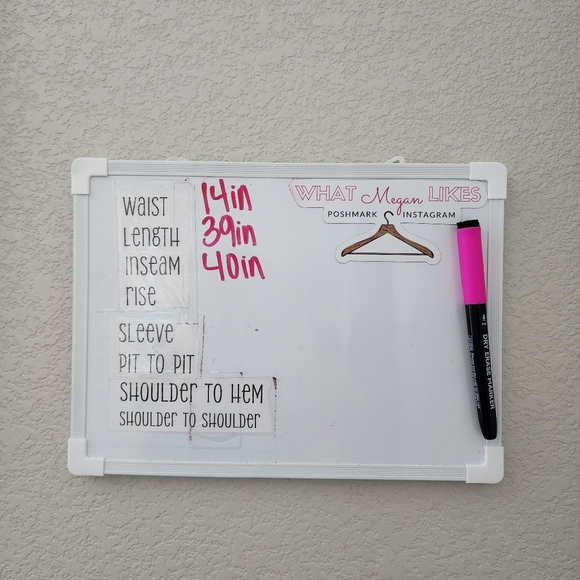 WAIST 14in
LENGTH 39in
INSEAM 40in
RISE
SLEEVE
PIT TO PIT
SHOULDER TO HEM
SHOULDER TO SHOULDER
WHAT Megan LIKES
POSHMARK INSTAGRAM
DRY ERASE MARKER